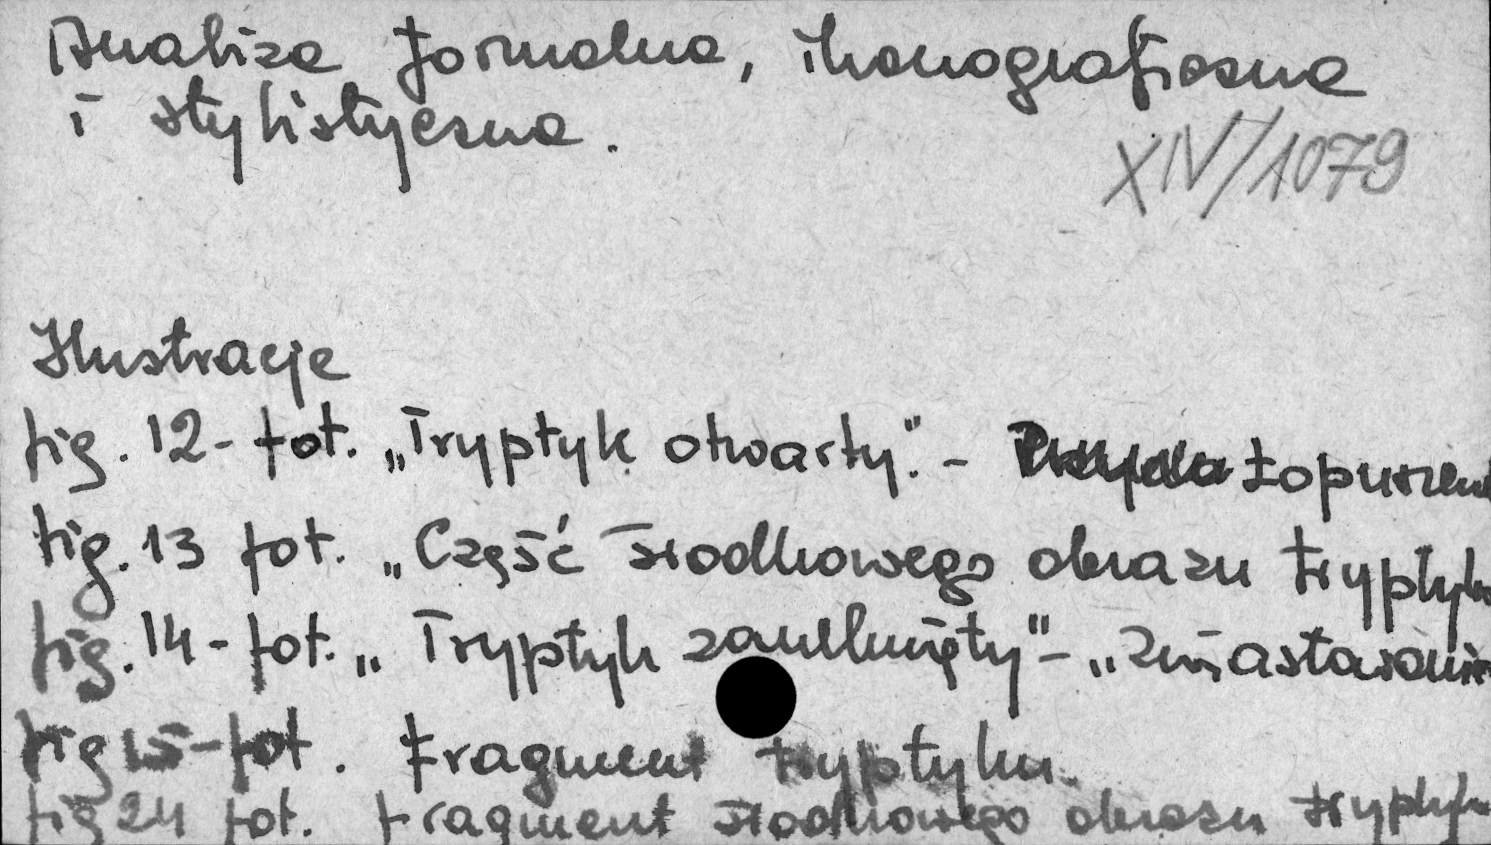 Analiza formalna, ikonograficzna
i stylistyczna.
XIV/1079
Ilustracje
fig. 12 - fot. „Tryptyk otwarty". - Łopuszna
fig. 13 fot. „Część środkowego obrazu tryptyku
fig. 14 - fot. „Tryptyk zamknięty" - „Zwiastowanie
fig 15 - fot. fragment tryptyku.
fig 24 fot. fragment środkowego obrazu tryptyku